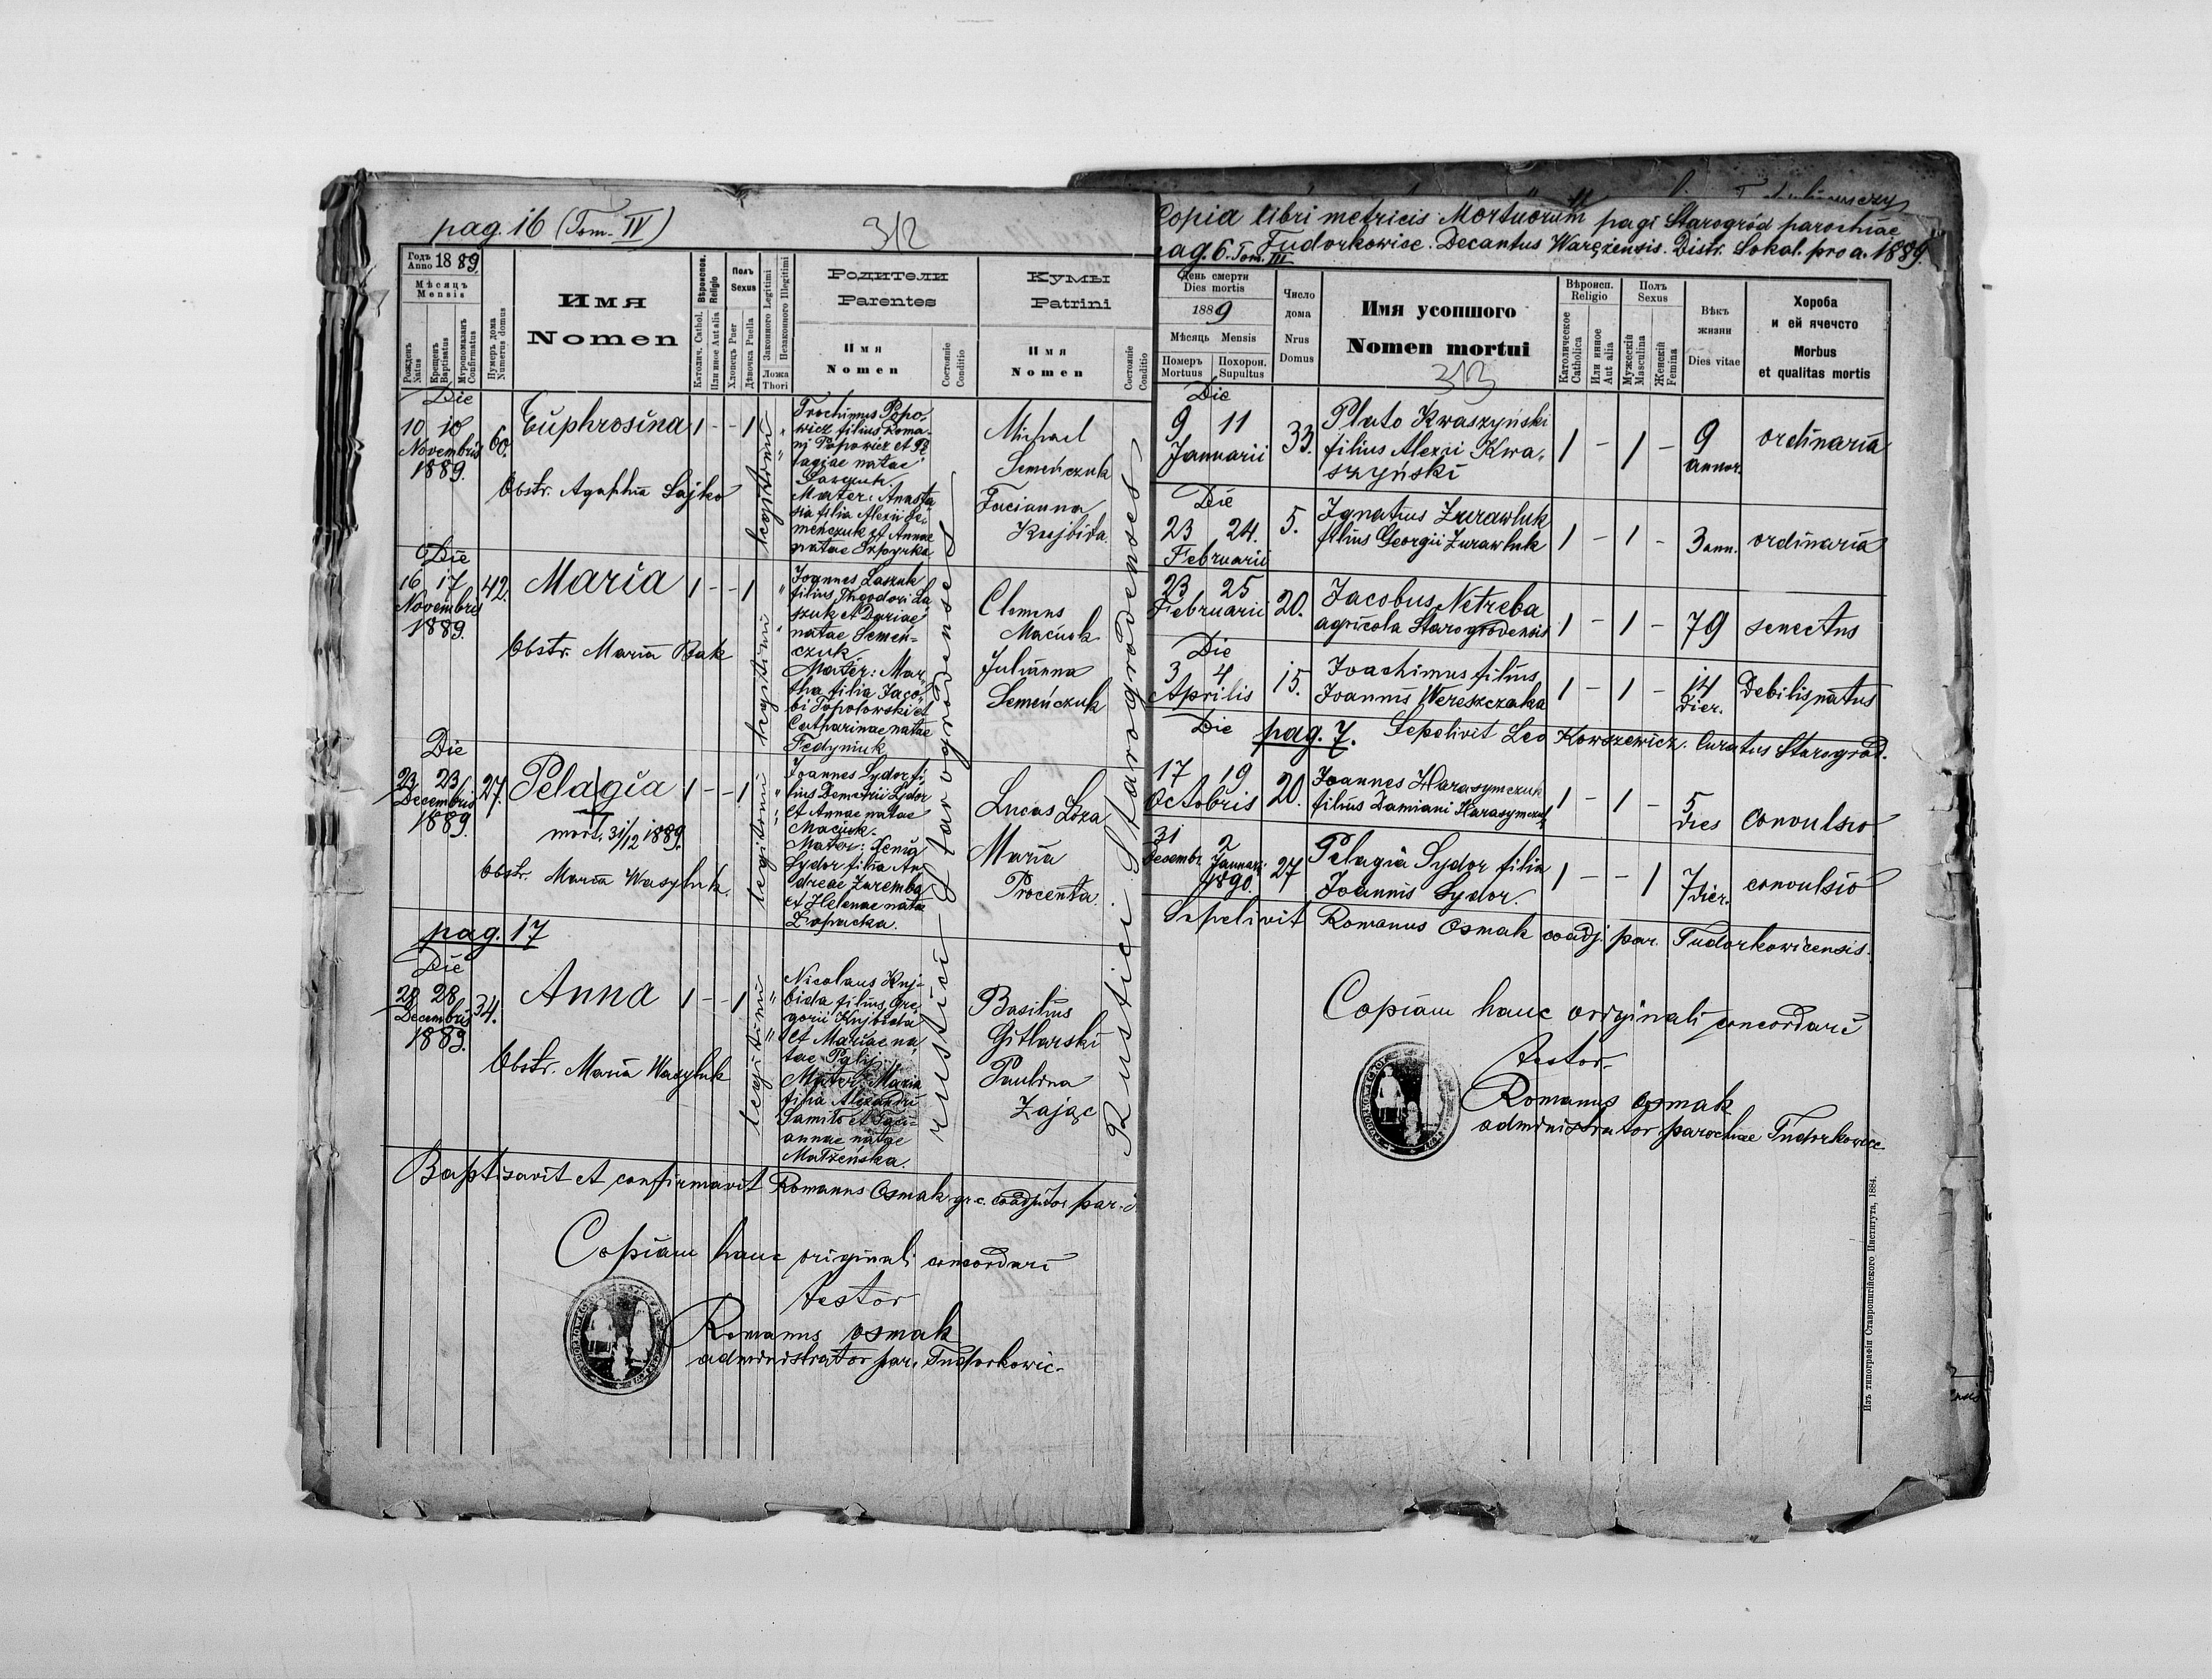 pag. 16 (Tom. IV)
312
Годъ
Anno 1889
Мѣсяць
Mensis
Рожденъ
Natus
Крещенъ
Baptisatus
Мѵропомазанъ
Confirmatus
Нумеръ дома
Numerus domus
Имя
Nomen
Вѣроиспов.
Religio
Католич. Cathol.
Или иное Aut alia
Полъ
Sexus
Хлопець Puer
Дѣвочка Puella
Законного Legitimi
Незаконного Illegitimi
Ложа
Thori
Родители
Parentes
Имя
Nomen
Состояніе
Conditio
Кумы
Patrini
Имя
Nomen
Состояніе
Conditio
Die
10 10
Novembris
1889.
60.
Euphrosina
1 - - 1
legitimi
Obstr. Agaphia Sajko
Trochimus Popo-
wicz filius Roma-
ni Popowicz et Pe
lagiae natae
Mater: Anasta
sia filia Alexii Se-
meńczuk et Annae
natae
Michael
Semeńczuk
Tacianna
Kujbida.
Die
16 17
Novembris
1889.
42.
Maria
1 - - 1
legitimi
Obstr. Maria Bak
Joannes Laszuk
filius Theodori La-
szuk et Dariae
natae Semeń-
czuk
Mater: Mar-
tha filia Jaco-
bi Topolowski et
Catharinae natae
Fedyniuk
Clemens
Maciuk
Julianna
Semeńczuk
Die
23 23
Decembris
1889.
27.
Pelagia
mort. 31/12 1889.
1 - - 1
legitimi
Obstr. Maria Wasyluk.
Joannes Sydor fi-
lius Demetrii Sydor
et Annae natae
Maciuk.
Mater: Xenia
Sydor filia An-
dreae Zaremba
et Helenae natae
Lucas Łoza
Maria
Procenta.
pag. 17
Die
28 28
Decembris
1889.
34.
Anna
1 - - 1
legitimi
Obstr. Maria Wasyluk
Nicolaus Kuj-
bida filius Gre-
gorii Kujbida
et Mariae na-
tae Palij
Mater: Maria
filia Alexandri
Samiło et Taci-
annae natae
Matzeńska.
Basilius
Gitlarski
Paulina
Zając
rustici Starogrodenses
Rustici Starogrodenses
Baptisavit et confirmavit Romanus Osmak gr. c. coadjutor par.
Copiam hanc originali concordari
testor
Romanus Osmak
administrator par. Tudorkowic.
Copia libri metricis Mortuorum pagi Starogród parochiae
pag. 6. Tom. III Tudorkowice. Decantus Warężensis. Distr. Sokal. pro a. 1889.
День смерти
Dies mortis
1889
Мѣсяць Mensis
Померъ
Mortuus
Похорон.
Supultus
Число
дома
Nrus
Domus
Имя усопшого
Nomen mortui
313
Вѣроисп.
Religio
Католическое
Catholica
Или инное
Aut alia
Полъ
Sexus
Мужескій
Masculina
Женскій
Femina
Вѣкъ
жизни
Dies vitae
Хороба
и ей ячечсто
Morbus
et qualitas mortis
Die
9 11
Januarii
33.
Plato Kwaszyński
filius Alexii Kwa-
szyński
1 - 1 -
9
annor.
ordinaria
Die
23 24.
Februarii
5.
Ignatius Żurawluk
filius Georgii Żurawluk
1 - 1 -
3 ann.
ordinaria
23 25
Februarii
20.
Jacobus Netreba
agricola Starogrodensis
1 - 1 -
79
senectus
Die
3 4
Aprilis
15.
Joachimus filius
Joannis Wereszczaka
1 - 1 -
14
dier.
debilis natus
Die pag. 7. Sepelivit Leo Kowszewicz. Curatus Starogrod.
17 19
Octobris
20.
Joannes Harasymczuk
filius Damiani Harasymczuk
1 - 1 -
5
dies
convulsio
31 2
Decembr. Januarii
1890.
27
Pelagia Sydor filia
Joannis Sydor.
1 - - 1
7 dier.
convulsio
Sepelivit Romanus Osmak coadj. par. Tudorkowicensis.
Copiam hanc originali concordari
testor.
Romanus Osmak
administrator parochiae Tudorkowice
Изъ типографіи Ставропигійского Института, 1884.